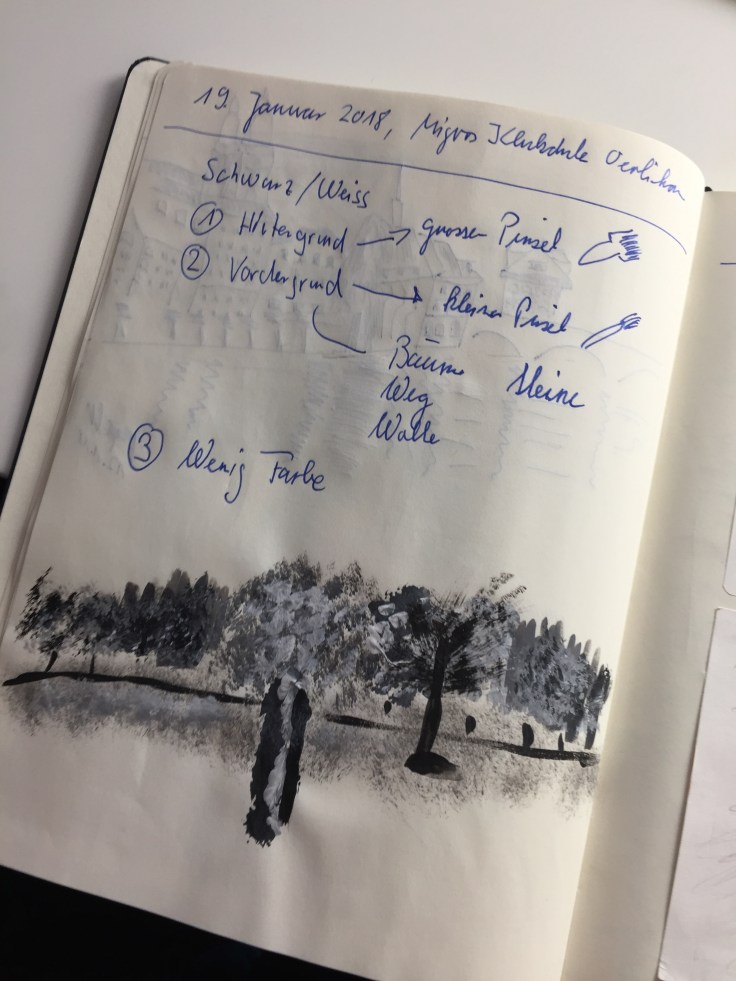 19. Januar 2018, Migros Klubschule Oerlikon
Schwarz/Weiss
① Hintergrund → grosser Pinsel
② Vordergrund → kleiner Pinsel
Bäume Steine
Weg
③ Wenig Farbe